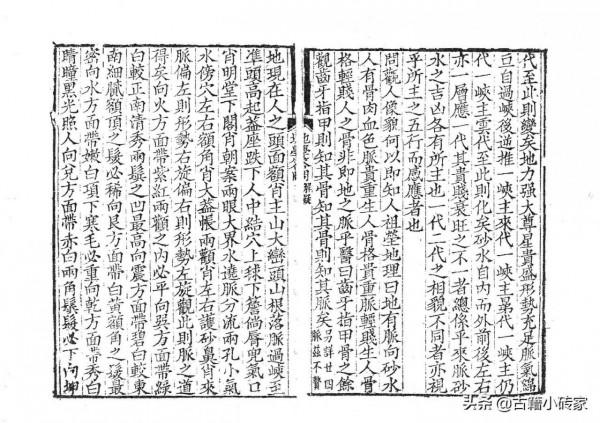 代至此則變矣地力强大尊星貴盛形勢充足脈氣綿
亘自過峽後逆推一峽主來代一峽主晜代一峽主仍
代一峽主雲代至此則化矣砂水自內而外前後左右
亦一層應一代其貴賤衰旺之不一者總係乎來脈砂
水之吉凶各有所主也一代一代之相貌不同者亦視
乎所主之五行而感應者也
問觀人像貌何以即知人祖塋地理曰地有形脈向砂水
人有骨肉血色脈貴重生人骨格貴重脈輕賤生人骨
格輕賤人之骨非即地之脈乎醫曰齒牙指甲骨之餘
觀齒牙指甲則知其骨知其骨則知其脈矣易詳廿四
脈茲不贅
地現在人之頭面額肖主山大巒頭山根落脈過峽至
準頭高起蓋座跌下人中結穴上毬下簷倘脣兜氣口
肖明堂下閣肖朝案兩眼大界水遶脈分流兩孔小氣
水傍穴左右額角肖大蓋帳兩顴肖左右護砂鼻肖來
脈偏左則形勢右旋偏右則形勢左旋觀此則脈之道
得矣向火方面帶紫紅兩顴之內必平向巽方面帶青
白較正南清秀兩鬢之凹最高向震方面帶碧白較東
南細膩額頂之髮必稀向艮方面帶白黃額角之髮最
密向水方面帶嫩白項下寒毛必重向乾方面帶秀白
睛瞳黑光照人向兌方面帶赤白兩角鬚髮必下向坤
头条 @古籍小砖家